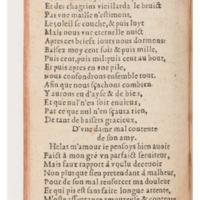 Et des chagrins vieillards le bruict
Pas vne maille n'estimons.
Le soleil se couche, & puis luyt
Mais nous vne eternelle nuict
Apres ces briefs iours nous dormons:
Baisez moy cent fois & puis mille,
Puis cent, puis mil: puis cent au bout,
Et puis apres en vne pile,
Nous confondrons ensemble tout.
Afin que nous sçachons combien
Yaurons eu d'ayse & de bien,
Et que nul n'es soit enuieux,
Par ce que nul n'y sçaura rien,
De tant de baisers gracieux.
D'vne dame mal contente
de son amy.
Helas m'amour ie pensoys bien auoir
Faict à mon gré vn parfaict seruiteur,
Mais faux rapport à voulu deceuoir
Non plus que sien pretendant à malheur,
Pour de son mal renforcer ma douleur
Et qui pis est sans faire longue attente,